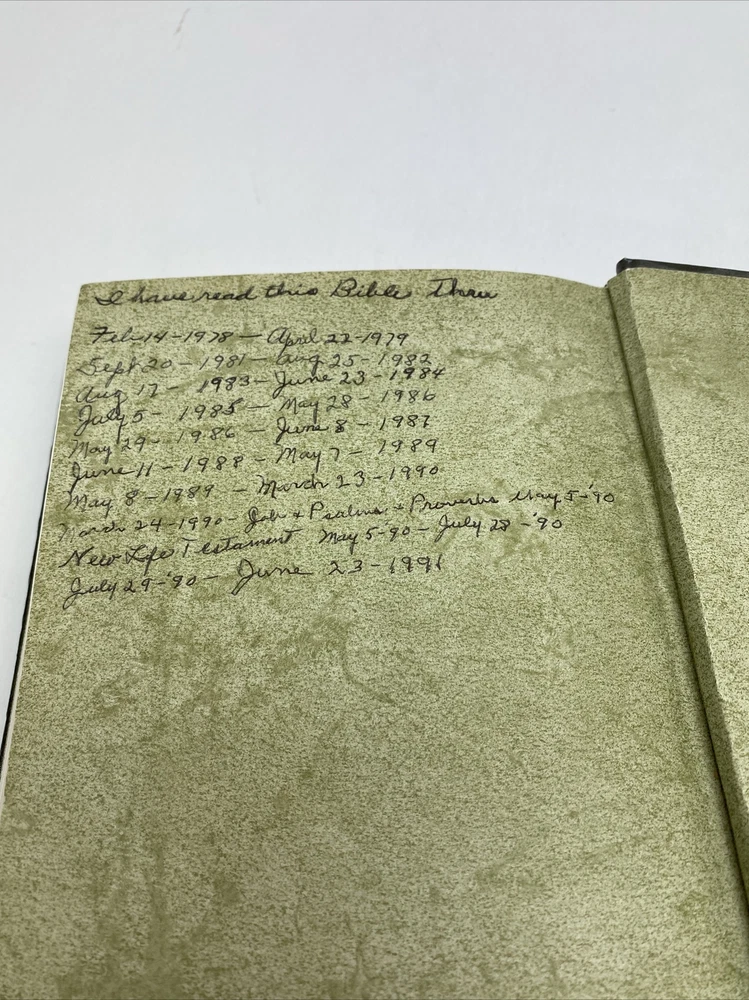 I have read this Bible Thru
Feb-14-1978 — April 22-1979
Sept 20-1981 — Aug 25-1982
Aug 17- 1983 - June 23-1984
July 5- 1985 — May 28-1986
May 29-1986 - June 8-1987
June 11-1988 - May 7-1989
May 8-1989 - March 23-1990
March 24-1990 - Job + Psalms + Proverbs May 5-'90
New Life Testament May 5-90 - July 28-'90
July 29-'90 - June 23-1991